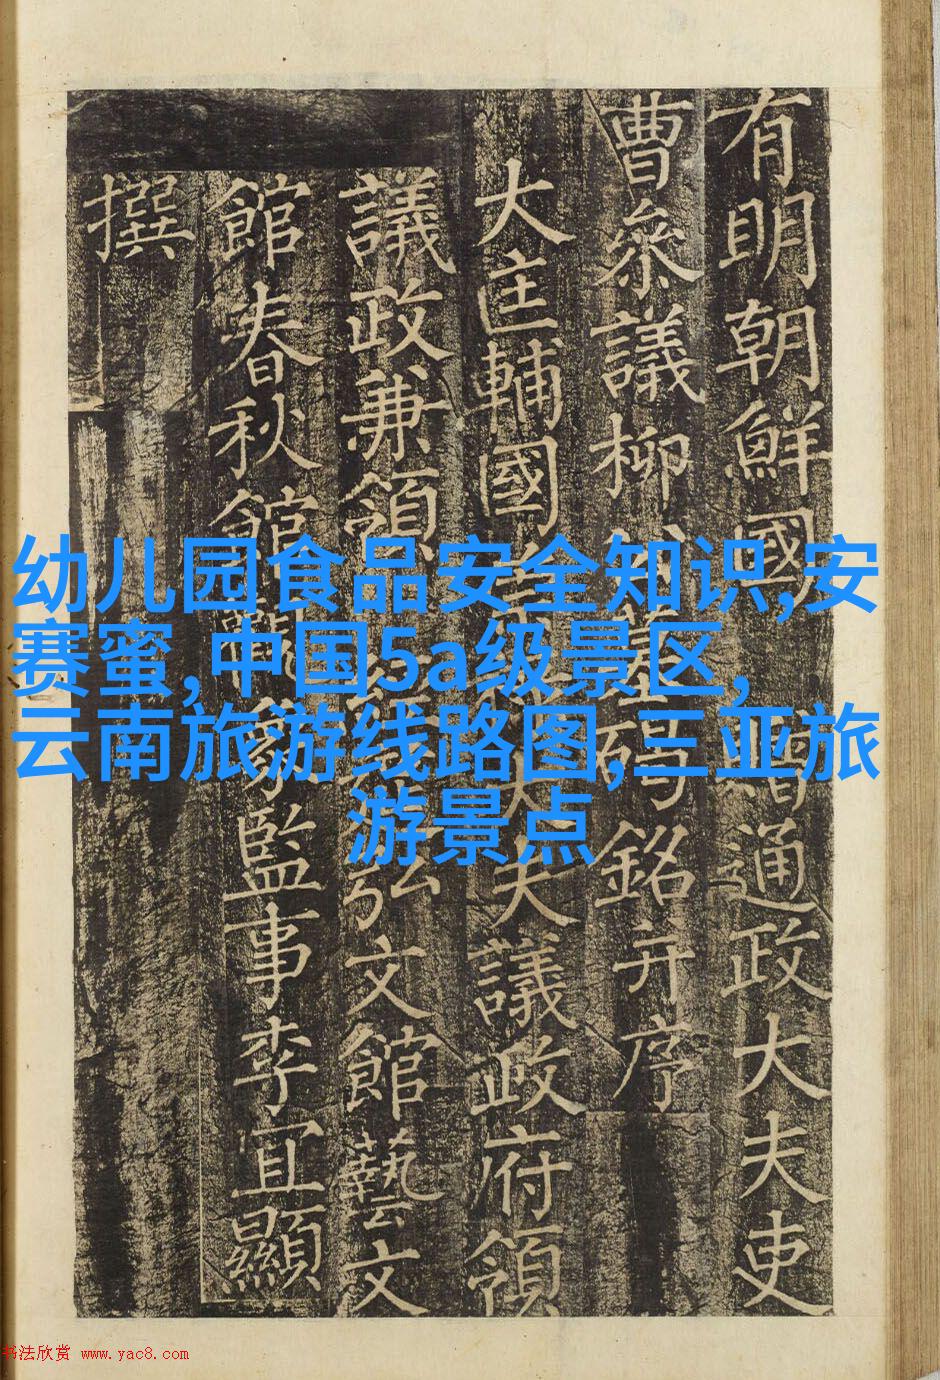 有明朝鮮國贈通政大夫吏
曹叅議柳公墓碣銘并序
大匡輔國大夫議政府領
議政兼領弘文館藝文
館春秋館觀象監事李宜顯
撰
幼儿园食品安全知识,安
赛蜜,中国5a级景区,
云南旅游线路图,三亚旅
游景点
书法欣赏 www.yac8.com